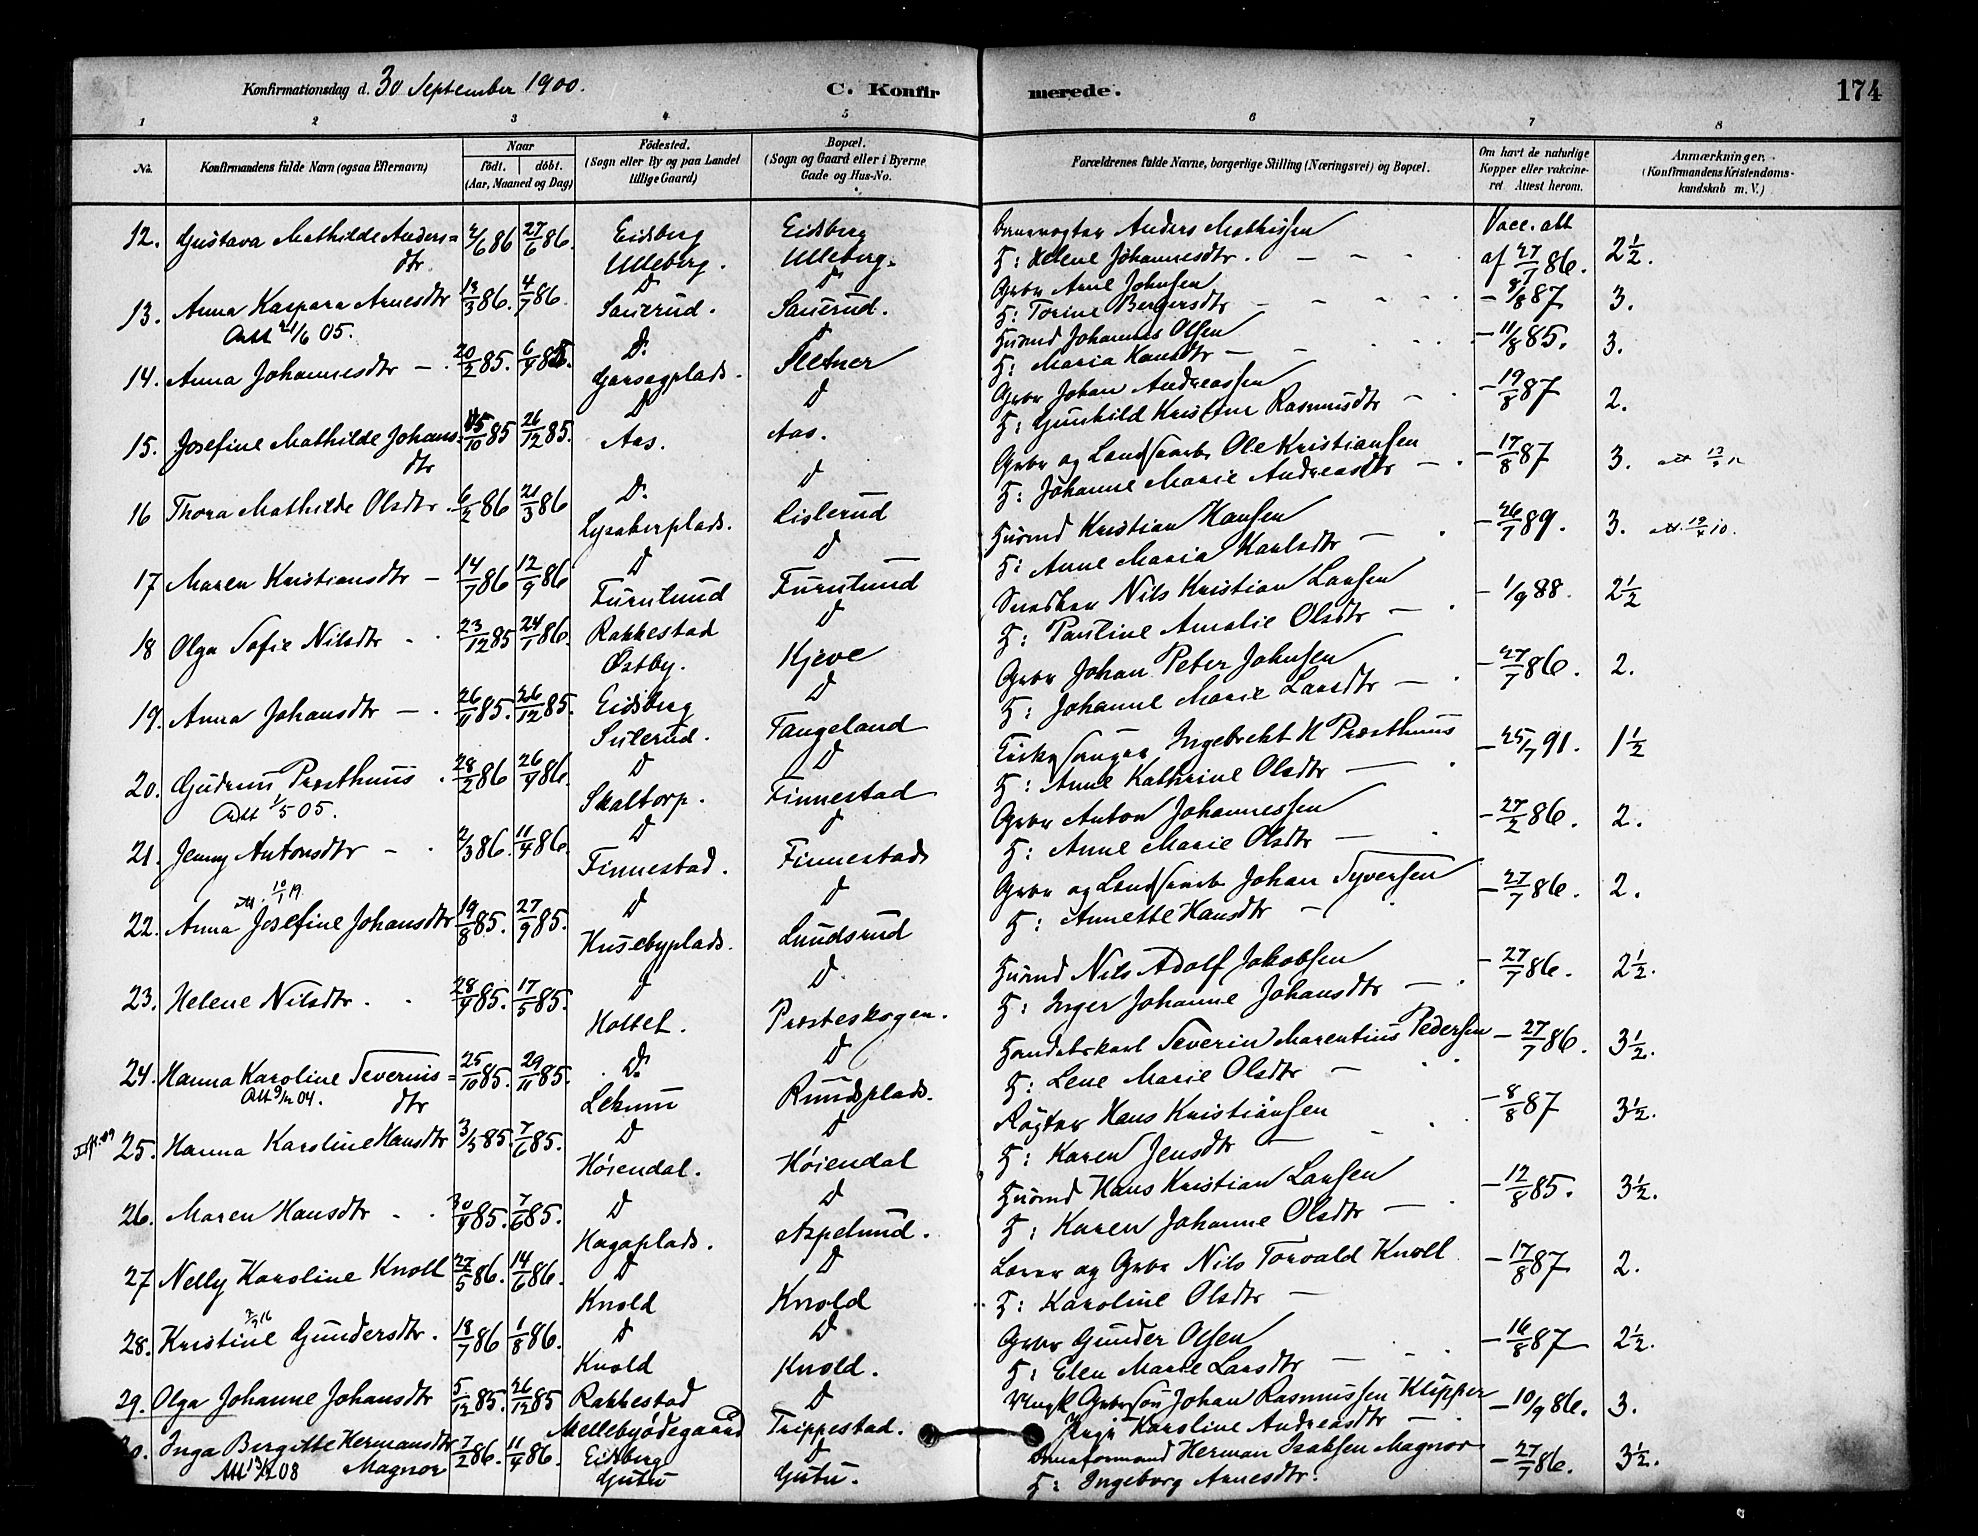 Konfirmationsdag d. 30 September 1900. C. Konfirmerede. 174
1 2 3 4 5 6 7 8
No. Konfirmandens fulde Navn (ogsaa Efternavn) Naar født. døbt. (Aar, Maaned og Dag) Fødested. (Sogn eller By og paa Landet tillige Gaard) Bopæl. (Sogn og Gaard eller i Byerne Gade og Hus-No. Forældrenes fulde Navne, borgerlige Stilling (Næringsvei) og Bopæl. Om havt de naturlige Kopper eller vakcineret Attest herom. Anmærkninger. (Konfirmandens Kristendomskundskab m. V.)
12. Gustava Mathilde Anders= 2/6 86 27/6 86. Eidsberg Eidsberg Anders Mathissen Vacc. att
dtr Ulleberg. Ulleberg. H: Helene Johannesdtr. af 27/7 86. 2½.
13. Anna Kaspara Arnesdtr 13/3 86. 4/7 86. D D Gbr Arne Johnsen
Att 21/6 05. Sauerud. Sauerud. H: Torine Bergersdtr 8/8 87 3.
14. Anna Johannesdtr 20/2 85. 6/4 85. D. D Husmd Johannes Olsen
Garsegplads. Sletner H: Maria Hansdtr 11/8 85. 3.
15. Josefine Mathilde Johans= 15/10 85 26/12 85. D D Gbr Johan Andreassen
dtr Aas. Aas. H: Gunhild Kristine Rasmusdtr 19/8 87 2.
16 Thora Mathilde Olsdtr 6/2 86 21/3 86 D. D Gbr og Landhandl Ole Kristiansen
Lysakerplads. Lislerud H: Johanne Marie Andreasdtr 17/8 87 3.
17 Maren Kristiansdtr 14/7 86 12/9 86 D D Husmd Kristian Hansen
Furulund Furulund H: Anne Maria Karlsdtr 26/7 89. 3.
18 Olga Sofie Nilsdtr 23/12 85 24/1 86. Rakkestad D Snedker Nils Kristian Larsen
Østby. Kjeve H: Pauline Amalie Olsdtr 1/9 88. 2½
19. Anna Johansdtr 26/11 85. 26/12 85. Eidsberg D Gbr Johan Peter Johnsen
Sulerud. Tangeland H: Johanne Marie Larsdtr 27/7 86. 2.
20. Gudrun Præsthuus 28/2 86 26/4 86. D D Kirkesanger Ingebrekt H Præsthuus
Att 1/5 05. Skaltorp. Finnestad H: Anne Kathrine Olsdtr 25/7 91. 1½
21. Jenny Antonsdtr 2/3 86. 11/4 86. D D Gbr Anton Johannessen
Finnestad. Finnestad H: Anne Marie Olsdtr 27/2 86. 2.
Att. 10/1 19.
22. Anna Josefine Johansdtr 19/8 85. 27/9 85. D D Gbr og Landhandl Johan Syversen
Husebyplads. Lundsrud H: Annette Hansdtr 27/7 86. 2.
23. Helene Nilsdtr. 28/4 85. 17/5 85. D D Husmd Nils Adolf Jakobsen
Holtet. Præsteskogen. H: Inger Johanne Johansdtr 27/7 86. 2½.
24. Hanna Karoline Severins= 25/10 85. 29/11 85. D. D Handelskarl Severin Marentius Pedersen
Att 9/12 04. dtr Lekum Rundsplads. H: Lene Marie Olsdtr 27/7 86. 3½.
25. Hanna Karoline Hansdtr 3/5 85. 7/6 85. D D Røgter Hans Kristiansen
Høiendal. Høiendal H: Karen Jensdtr 8/8 87 3½.
26. Maren Hansdtr 30/4 85. 7/6 85. D D Husmd Hans Kristian Larsen
Hagaplads. Aspelund. H: Karen Johanne Olsdtr 12/8 85. 3½.
27 Nelly Karoline Knoll 27/5 86. 14/6 86. D D Lærer og Gbr Nils Torvald Knoll
Knold Knold H: Karoline Olsdtr 17/8 87 2.
28. Kristine Gundersdtr. 18/7 86 1/8 86. D D Gbr Gunder Olsen
Knold Knold. H: Elen Marie Larsdtr 16/8 87 2½.
29. Olga Johanne Johansdtr 5/12 85. 26/12 85 Rakkestad D Ungk Gbrsøn Johan Rasmussen Klipper
Mellebyødegaard Trippestad. Pige Karoline Andreasdtr 10/9 86. 3.
Inga Bergitte Hermansdtr 7/2 86. 11/4 86. Eidsberg D Baneformand Herman Isaksen Magnor
Att 13/12 08 Magnor Gutu Gutu. H: Ingeborg Arnesdtr. 27/7 86. 3½.